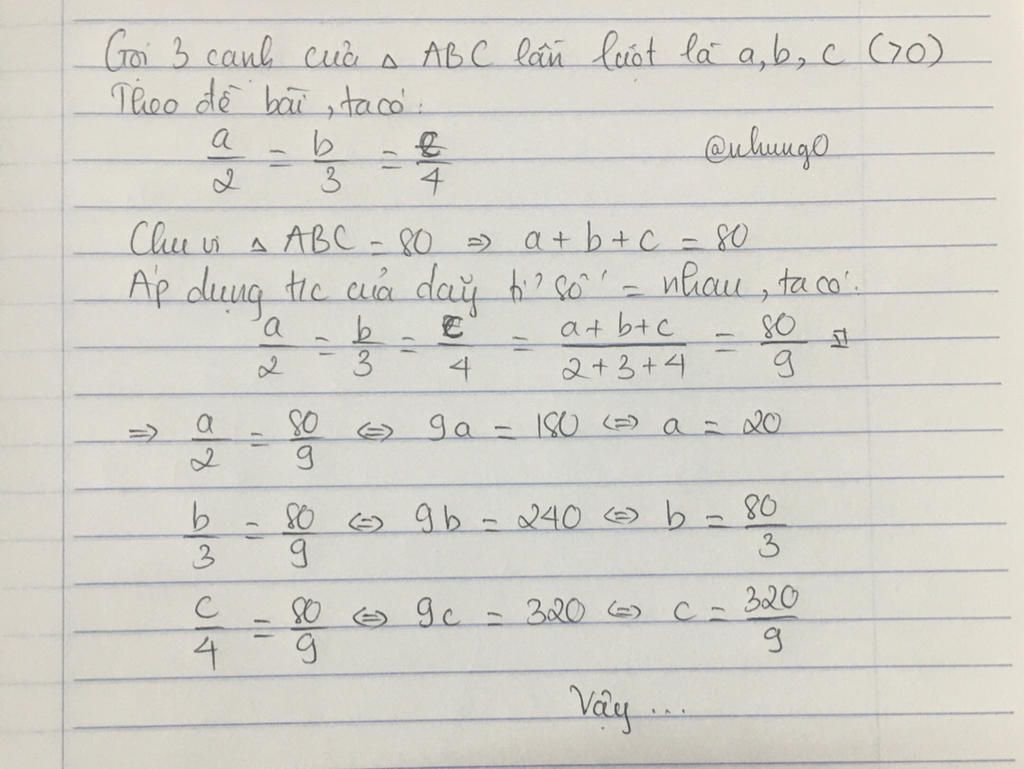 Gọi 3 cạnh của Δ ABC lần lượt là a, b, c (>0)
Theo đề bài, ta có:
a/2 = b/3 = c/4
@nhung0
Chu vi Δ ABC = 80 ⇒ a + b + c = 80
Áp dụng t/c của dãy tỉ số = nhau, ta có:
a/2 = b/3 = c/4 = (a+b+c)/(2+3+4) = 80/9
⇒ a/2 = 80/9 ⇔ 9a = 180 ⇔ a = 20
b/3 = 80/9 ⇔ 9b = 240 ⇔ b = 80/3
c/4 = 80/9 ⇔ 9c = 320 ⇔ c = 320/9
Vậy ...